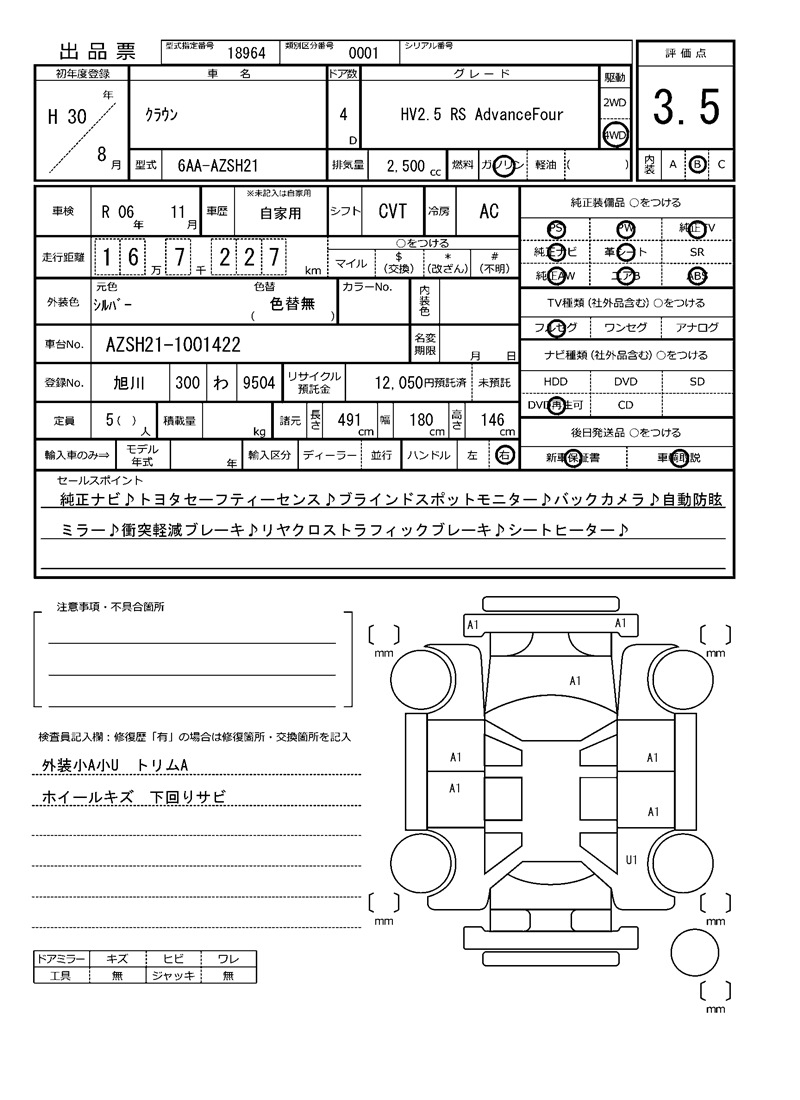 出品票 型式指定番号 18964 類別区分番号 0001 シリアル番号
評価点
3.5
内装 A B C
初年度登録 車名 ドア数 グレード 駆動
H 30 年 8 月 クラウン 4 D HV2.5 RS AdvanceFour 2WD
4WD
型式 6AA-AZSH21 排気量 2,500 cc 燃料 ガソリン 軽油 ( )
車検 R 06 年 11 月 車歴 ※未記入は自家用 自家用 シフト CVT 冷房 AC
走行距離 1 6 万 7 千 2 2 7 km ○をつける
マイル $ (交換) * (改ざん) # (不明)
外装色 元色 シルバー 色替 色替無 ( ) カラーNo. 内装色
車台No. AZSH21-1001422 名変期限 月 日
登録No. 旭川 300 わ 9504 リサイクル預託金 12,050円預託済 未預託
定員 5 ( ) 人 積載量 kg 諸元 長さ 491 cm 幅 180 cm 高さ 146 cm
輸入車のみ⇒ モデル年式 年 輸入区分 ディーラー 並行 ハンドル 左 右
純正装備品 ○をつける
PS PW 純正TV
純正ナビ 革シート SR
純正AW エアB ABS
TV種類 (社外品含む) ○をつける
フルセグ ワンセグ アナログ
ナビ種類 (社外品含む) ○をつける
HDD DVD SD
DVD再生可 CD
後日発送品 ○をつける
新車保証書 車輌取説
セールスポイント
純正ナビ♪トヨタセーフティーセンス♪ブラインドスポットモニター♪バックカメラ♪自動防眩
ミラー♪衝突軽減ブレーキ♪リヤクロストラフィックブレーキ♪シートヒーター♪
注意事項・不具合箇所
検査員記入欄：修復歴「有」の場合は修復箇所・交換箇所を記入
外装小A小U トリムA
ホイールキズ 下回りサビ
ドアミラー キズ ヒビ ワレ
工具 無 ジャッキ 無
A1 A1
mm mm
A1
A1 A1
A1
A1
U1
mm mm
mm